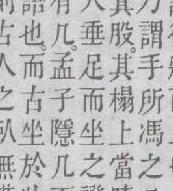 乃謂手所馮之
其股。其榻上當
人垂足而坐之
有几。孟子隱几
謂也。而古坐於
古人之臥無